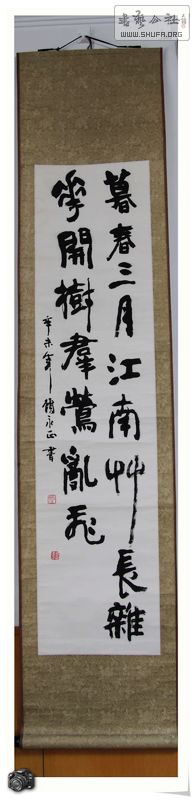 暮春三月江南艸長雜
華開樹羣鶯亂飛
辛未年
永正書
書藝公社
WWW.SHUFA.ORG